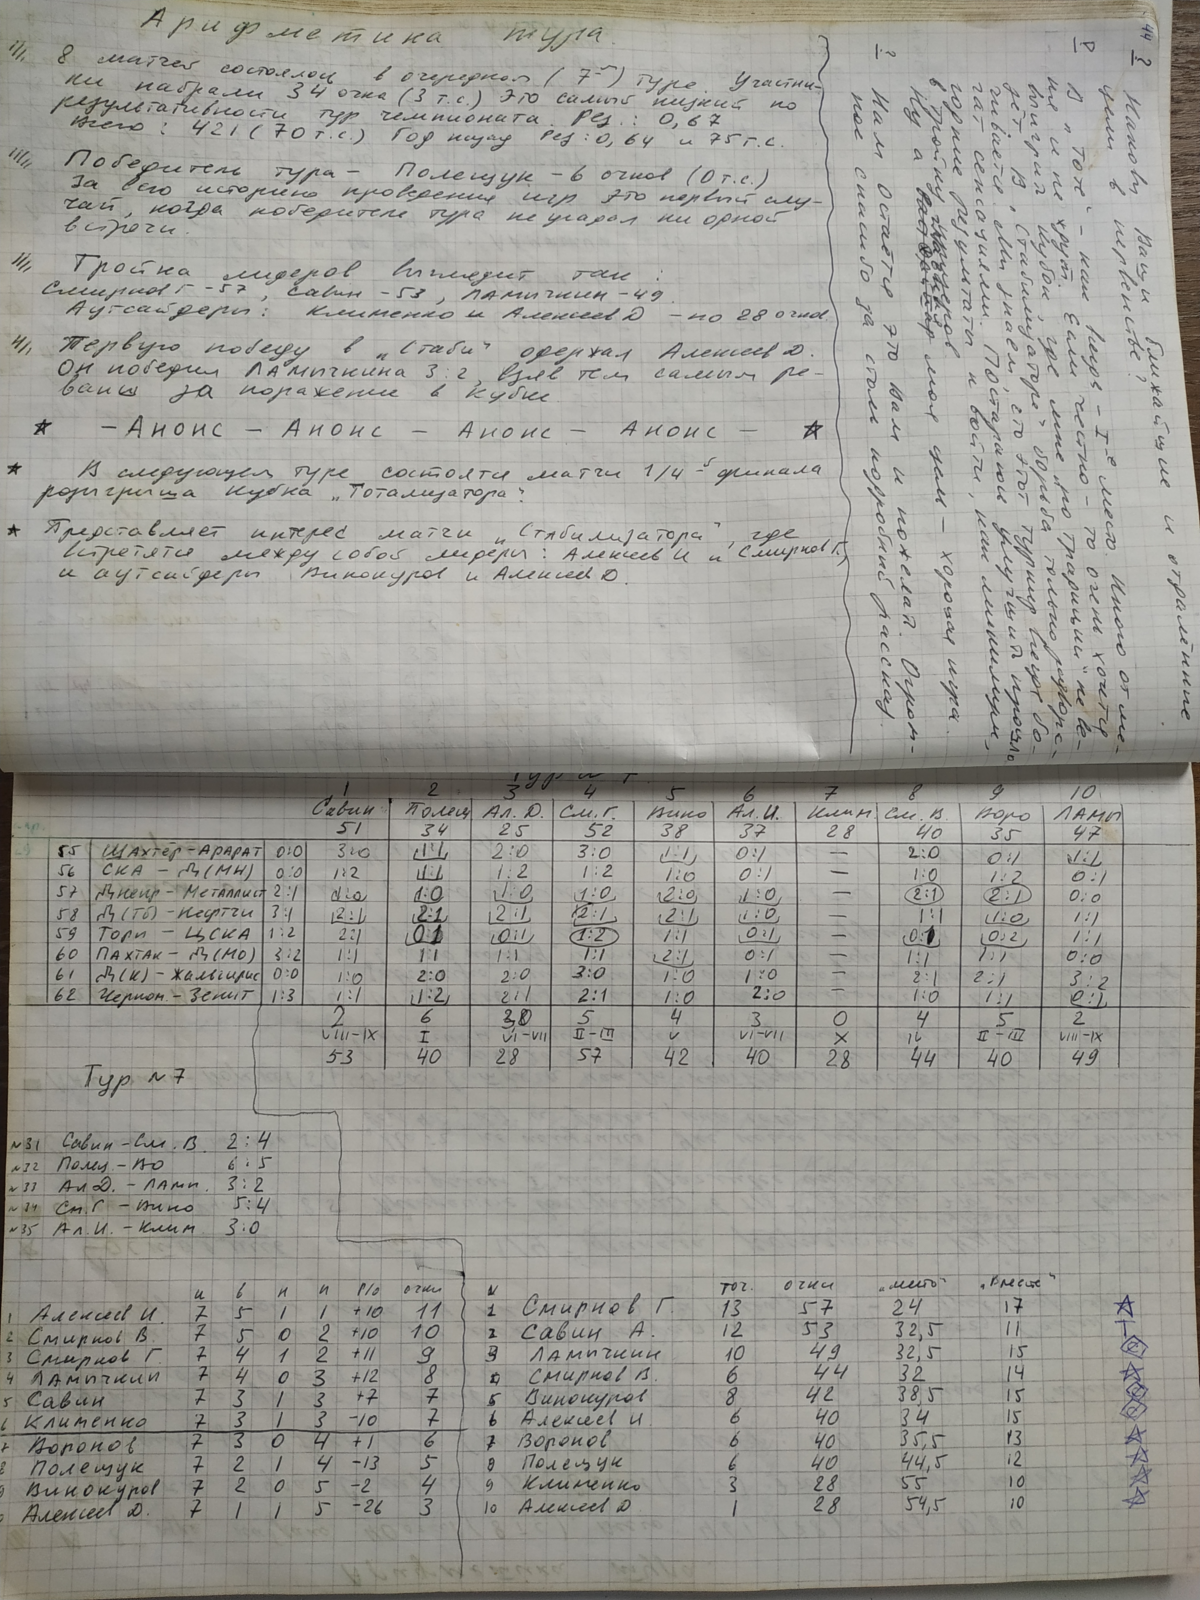 Арифметика тура.
8 матчей состоялось в очередном (7-й) туре. Участни-
ки набрали 34 очка (3 т.с.) Это самый низкий по
результативности тур чемпионата. Рез.: 0,67
Всего: 421 (70 т.с.) Год назад Рез: 0,64 и 75 т.с.
Победитель тура – Полещук – 6 очков (0 т.с.)
За всю историю проведения игр это первый слу-
чай, когда победитель тура не угадал ни одной
встречи.
Тройка лидеров выглядит так:
Смирнов Г – 57, Савин – 53, Ламычкин – 49.
Аутсайдеры: Клименко и Алексеев Д – по 28 очков
Первую победу в „Стаби" одержал Алексеев Д.
Он победил Ламычкина 3:2, взяв тем самым ре-
ванш за поражение в Кубке
★ – Анонс – Анонс – Анонс – Анонс – ★
★ В следующем туре состоятся матчи 1/4-й финала
розыгрыша Кубка „Тотализатора".
★ Представляет интерес матчи „Стабилизатора", где
встретятся между собой лидеры: Алексеев И и Смирнов Г,
и аутсайдеры Винокуров и Алексеев Д.
44
? Каковы Ваши ближайшие и отдалённые
цели в первенстве?
Р В „Тото" – как – I-е место. Много от ме-
ня и не ждут. Если честно – то очень хочется
выиграть Кубок, где мне по „традиции" не ве-
зёт. В „Стабилизаторе" борьба только разгора-
ется. Мы знаем, его этот турнир будет бо-
гат сенсациями. Постараюсь улучшить прошло-
годние результаты и войти, как минимум,
в тройку
Ну а моя цель – хорошая игра.
? Нам остаётся это Вам и пожелать. Огром-
ное спасибо за столь подробный рассказ.
1 2 3 4 5 6 7 8 9 10
Савин Полещ Ал.Д. См.Г. Вино Ал.И. Клим См.В. Воро Ламы
51 34 25 52 38 37 28 40 35 47
55 Шахтёр – Арарат 0:0 3:0 1:1 2:0 3:0 1:1 0:1 – 2:0 0:1 1:1
56 СКА – Д(Мн) 0:0 1:2 1:1 1:2 1:2 1:0 0:1 – 1:0 1:2 0:1
57 Днепр – Металлист 2:1 1:0 1:0 1:0 1:0 2:0 1:0 – 2:1 2:1 0:0
58 Д(Тб) – Нефтчи 3:1 2:1 2:1 2:1 2:1 2:1 1:0 – 1:1 1:0 1:1
59 Торп – ЦСКА 1:2 2:1 0:1 0:1 1:2 1:1 0:1 – 0:1 0:2 1:1
60 Пахтак – Д(Мо) 3:2 1:1 1:1 1:1 1:1 2:1 0:1 – 1:1 1:1 0:0
61 Д(К) – Жальгирис 0:0 1:0 2:0 2:0 3:0 1:0 1:0 – 2:1 2:1 3:2
62 Черном – Зенит 1:3 1:1 1:2 2:1 2:1 1:0 2:0 – 1:0 1:1 0:1
2 6 3 5 4 3 0 4 5 2
VIII–IX I VI–VII II–III V VI–VII X IV II–III VIII–IX
53 40 28 57 42 40 28 44 40 49
Тур №7
№31 Савин – См.В. 2:4
№32 Полещ – Во 6:5
№33 Ал.Д. – Лами. 3:2
№34 См.Г – Вино 5:4
№35 Ал.И. – Клим 3:0
и в н п Р/о очки
1 Алексеев И. 7 5 1 1 +10 11
2 Смирнов В. 7 5 0 2 +10 10
3 Смирнов Г. 7 4 1 2 +11 9
4 Ламычкин 7 4 0 3 +12 8
5 Савин 7 3 1 3 +7 7
6 Клименко 7 3 1 3 –10 7
7 Воронов 7 3 0 4 +1 6
8 Полещук 7 2 1 4 –13 5
9 Винокуров 7 2 0 5 –2 4
Алексеев Д. 7 1 1 5 –26 3
N точ. очки „место" „Вместе"
1 Смирнов Г. 13 57 24 17
2 Савин А. 12 53 32,5 11
3 Ламычкин 10 49 32,5 15
4 Смирнов В. 6 44 32 14
5 Винокуров 8 42 38,5 15
6 Алексеев И 6 40 34 15
7 Воронов 6 40 35,5 13
8 Полещук 6 40 44,5 12
9 Клименко 3 28 55 10
10 Алексеев Д 1 28 54,5 10